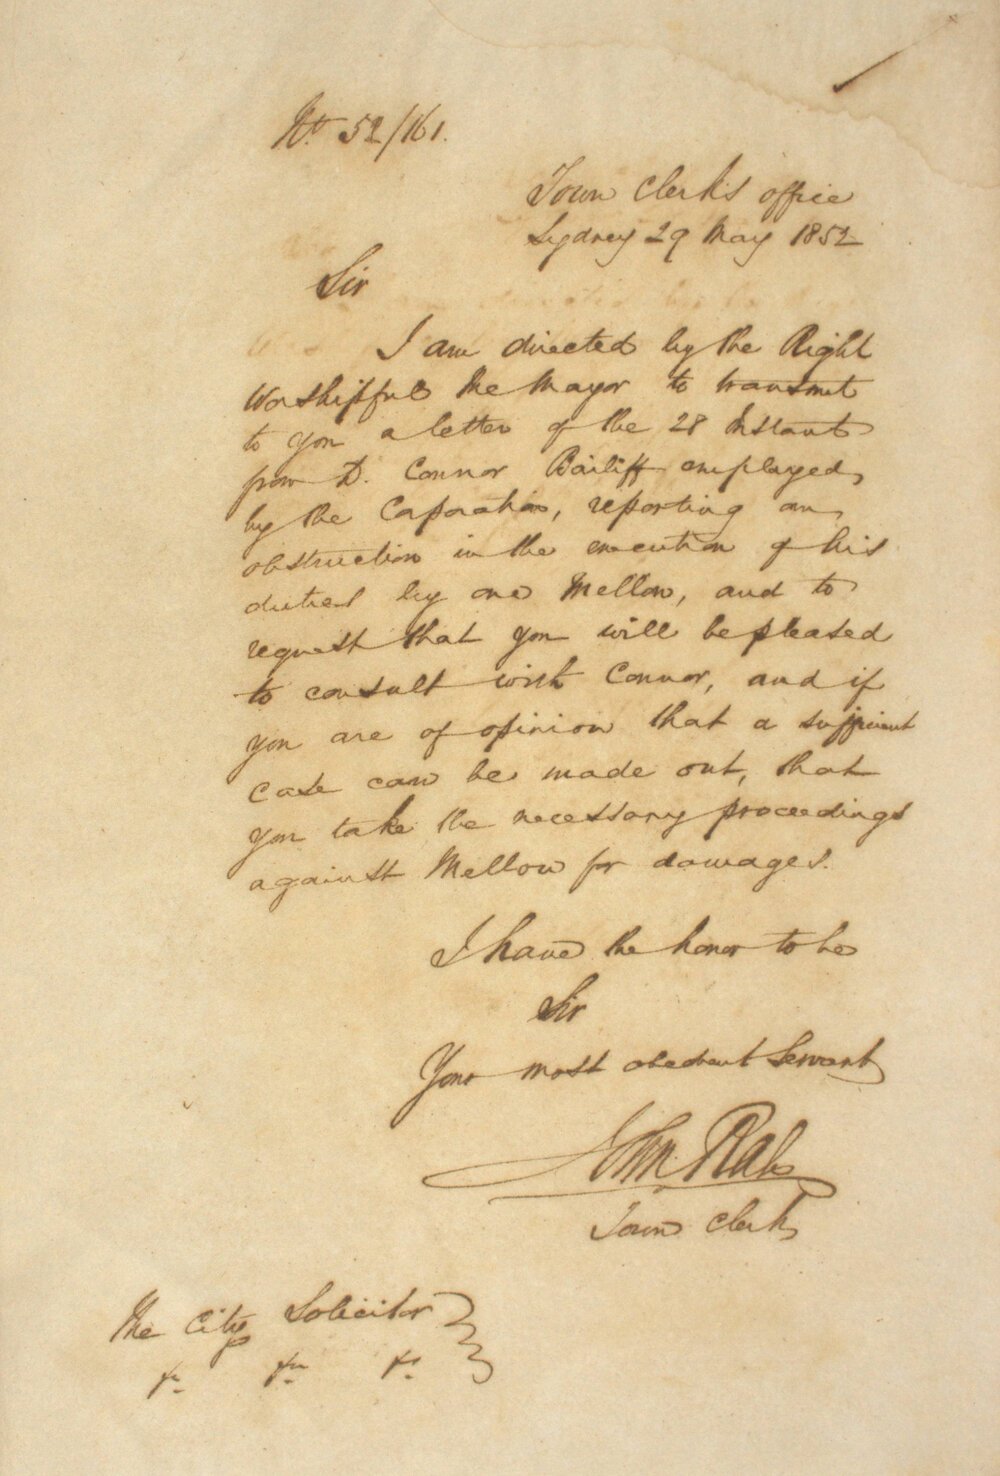 No. 52/161.
Town Clerk's office
Sydney 29 May 1852
Sir
I am directed by the Right
Worshipful the Mayor to transmit
to you a letter of the 28 Instant
from D. Connor Bailiff employed
by the Corporation, reporting an
obstruction in the execution of his
duties by one Mellon, and to
request that you will be pleased
to consult with Connor, and if
you are of opinion that a sufficient
case can be made out, that
you take the necessary proceedings
against Mellon for damages.
I have the honor to be
Sir
Your most obedient Servant
John Rae
Town Clerk
The City Solicitor
&c. &c. &c.